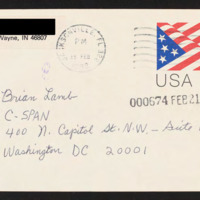 Wayne, IN 46807
PM
FEB
USA
000674 FEB 21
Brian Lamb
C-SPAN
400 N. Capitol St. N.W. - Suite
Washington DC 20001